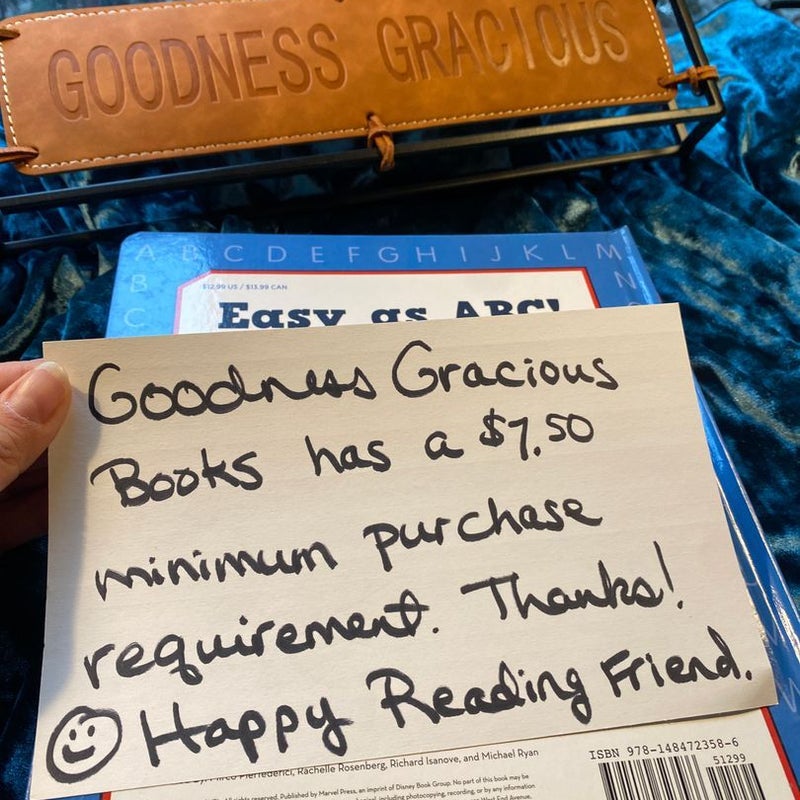 GOODNESS GRACIOUS
A B C D E F G H I J K L M
B N
C
$12.99 US / $13.99 CAN
Easy as ABC!
Goodness Gracious
Books has a $7.50
minimum purchase
requirement. Thanks!
Happy Reading Friend.
Rachelle Rosenberg, Richard Isanove, and Michael Ryan
rights reserved. Published by Marvel Press, an imprint of Disney Book Group. No part of this book may be
including photocopying, recording, or by any information
West End Avenue,
ISBN 978-148472358-6
51299